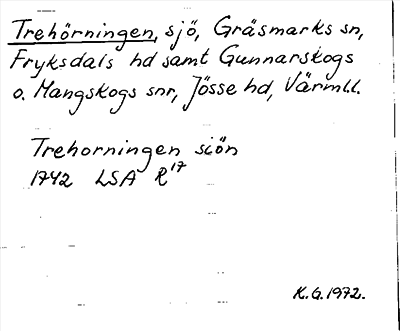 Trehörningen, sjö, Gräsmarks sn,
Fryksdals hd samt Gunnarskogs
o. Mangskogs snr, Jösse hd, Värmll.
Trehorningen siön
1742 LSA R¹⁷
K.G. 1972.